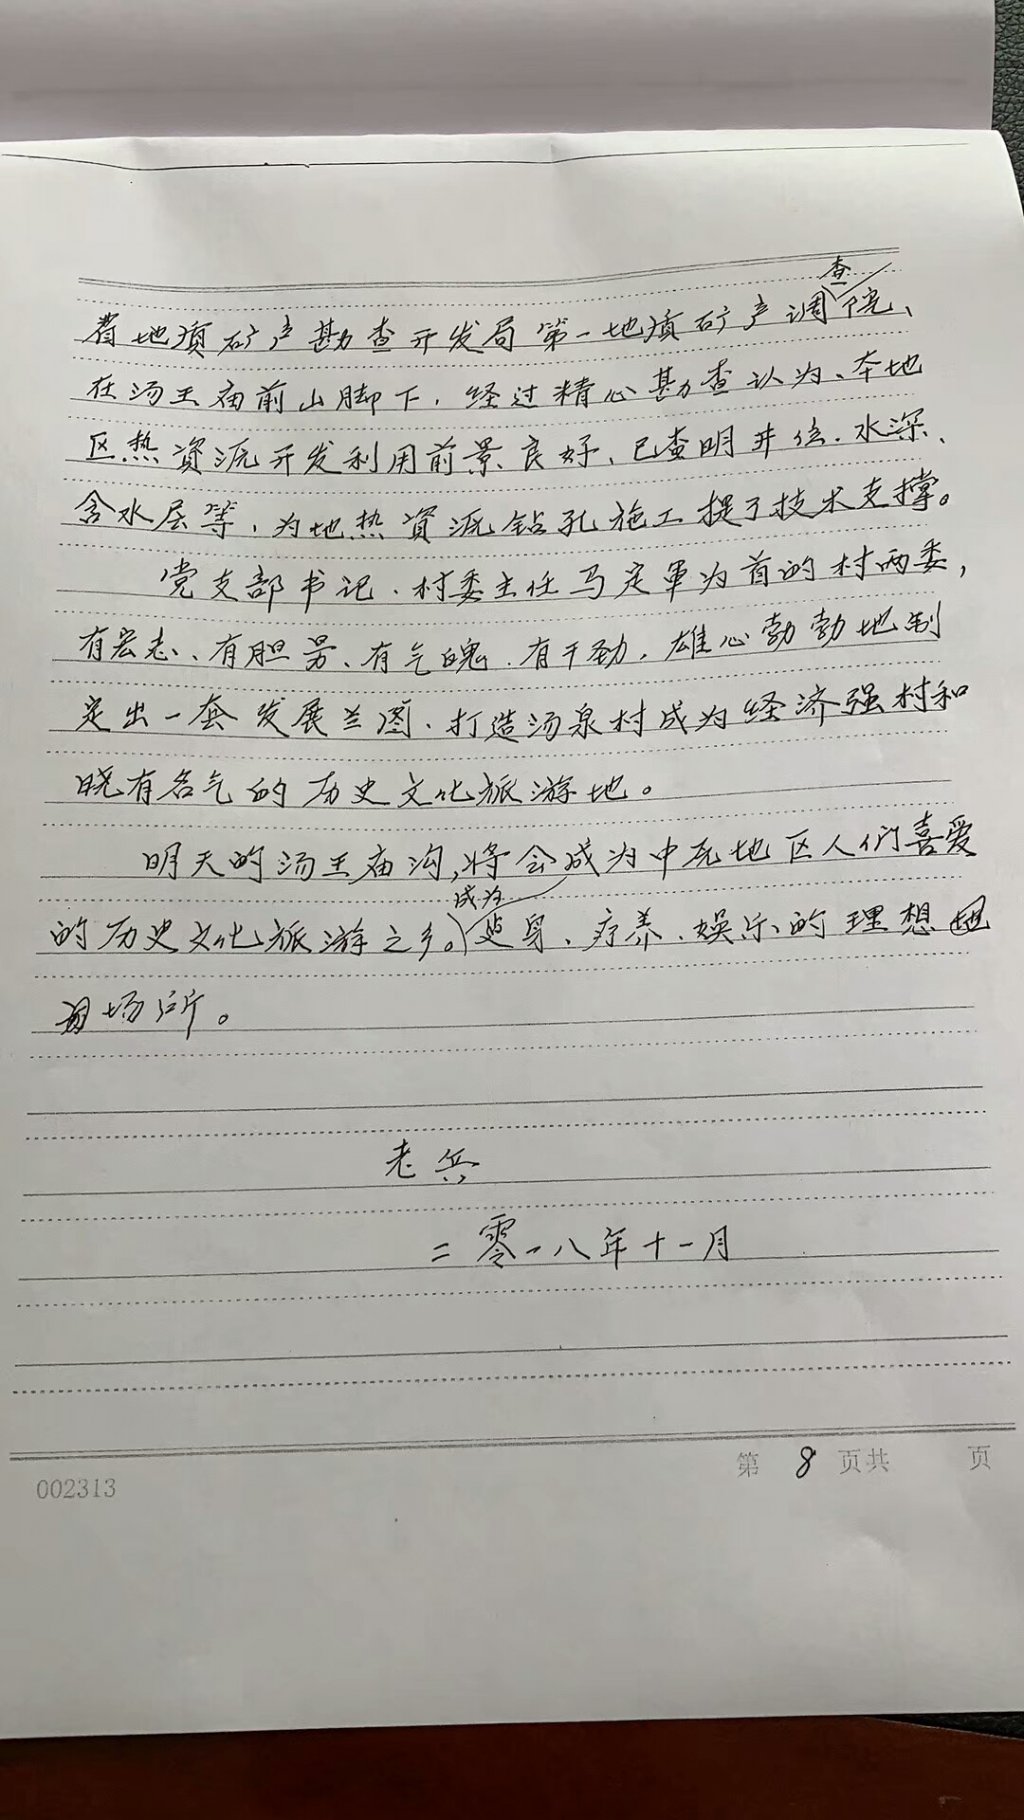 省地质矿产勘查开发局第一地质矿产调查院、
在汤王庙前山脚下，经过精心勘查认为、本地
区热资源开发利用前景良好、已查明井位、水深、
含水层等，为地热资源钻孔施工提了技术支撑。
党支部书记、村委主任马定军为首的村两委，
有宏志、有胆另、有气魄、有干劲，雄心勃勃地制
定出一套发展兰图、打造汤泉村成为经济强村和
晓有名气的历史文化旅游地。
明天的汤王庙沟,将会成为中原地区人们喜爱
的历史文化旅游之乡。成为健身、疗养、娱乐的理想
场所。
老兵
二零一八年十一月
002313
第 8 页共 页